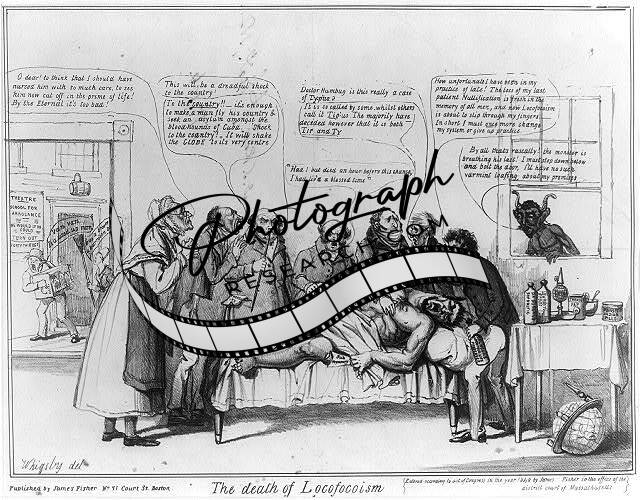 O dear! to think that I should have
nursed him with so much care, to see
him now cut off in the prime of life!
By the Eternal it's too bad!
This will be a dreadful shock
to the country
To the country!! - its enough
to make a man fly his country &
seek an asylum amongst the
bloodhounds of Cuba. Shock
to the country!_ It will shake
the GLOBE to its very centre
Doctor Humbug is this really a case
of Typus?
It is so called by some, whilst others
call it Tip-us. The majority have
decided however that it is both
Tip and Ty
"Had I but died an hour before this chance
I had liv'd a blessed time"
How unfortunate I have been in my
practice of late! The loss of my last
patient Nullification is fresh in the
memory of all men, and now Locofocoism
is about to slip through my fingers.
In short I must once more change
my system or give up practice
By all that's rascally! the monster is
breathing his last! I must step down below
and bolt the door, I'll have no such
varmint loafing about my premises
THEATRE
SCHOOL FOR
Photograph
RESEARCH
Whigsby del.
Published by James Fisher No 71 Court St. Boston
The death of Locofocoism
Entered according to act of Congress in the year 1840 by James Fisher in the office of the
district court of Massachusetts